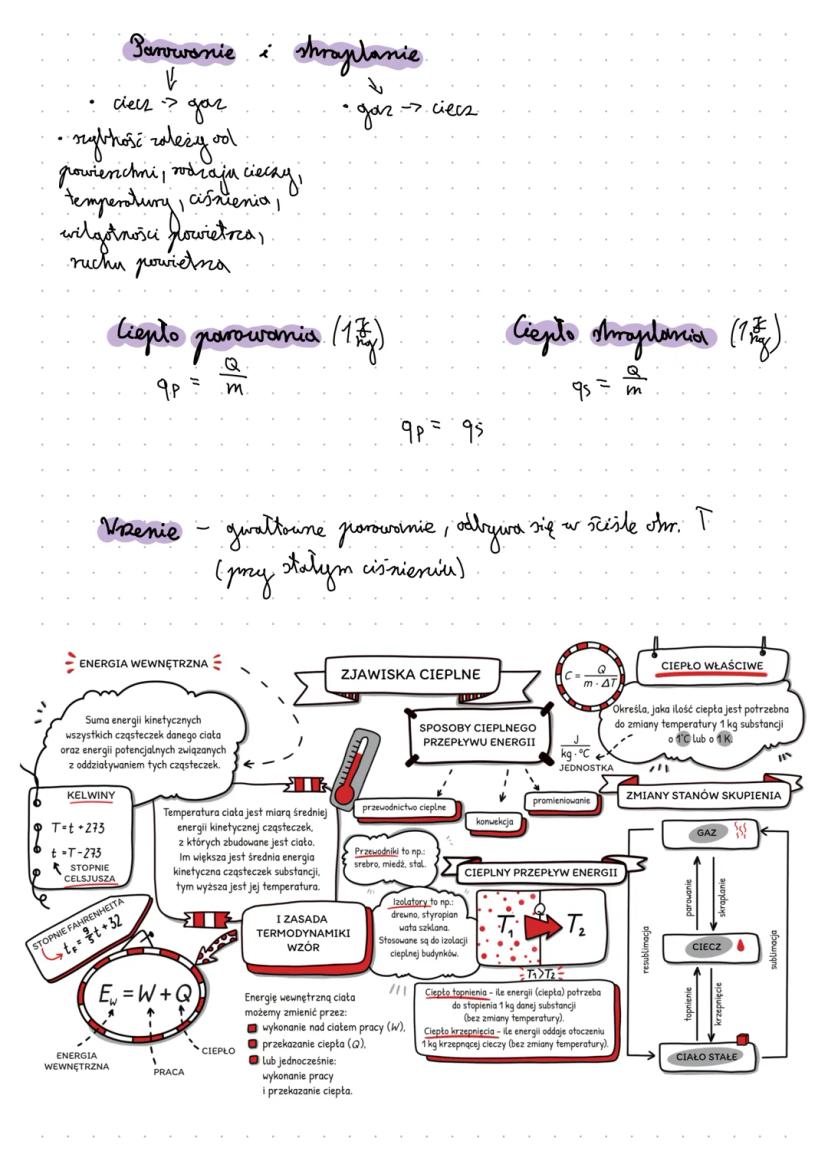 Parowanie i skraplanie
• ciecz -> gaz
• gaz -> ciecz
• szybkość zależy od
powierzchni, rodzaju cieczy,
temperatury, ciśnienia,
wilgotności powietrza,
ruchu powietrza
Ciepło parowania (1 J/kg)
Ciepło skraplania (1 J/kg)
qp = Q/m
qs = Q/m
qp = qs
Wrzenie – gwałtowne parowanie, odbywa się w ściśle okr. T
(przy stałym ciśnieniu)
ENERGIA WEWNĘTRZNA
Suma energii kinetycznych
wszystkich cząsteczek danego ciała
oraz energii potencjalnych związanych
z oddziaływaniem tych cząsteczek.
ZJAWISKA CIEPLNE
SPOSOBY CIEPLNEGO
PRZEPŁYWU ENERGII
przewodnictwo cieplne
konwekcja
promieniowanie
C = Q / m · ΔT
CIEPŁO WŁAŚCIWE
Określa, jaka ilość ciepła jest potrzebna
do zmiany temperatury 1 kg substancji
o 1°C lub o 1 K.
J / kg · °C
JEDNOSTKA
KELWINY
T = t + 273
t = T - 273
STOPNIE
CELSJUSZA
Temperatura ciała jest miarą średniej
energii kinetycznej cząsteczek,
z których zbudowane jest ciało.
Im większa jest średnia energia
kinetyczna cząsteczek substancji,
tym wyższa jest jej temperatura.
Przewodniki to np.:
srebro, miedź, stal.
Izolatory to np.:
drewno, styropian
wata szklana.
Stosowane są do izolacji
cieplnej budynków.
CIEPLNY PRZEPŁYW ENERGII
T₁ Q T₂
T₁ > T₂
Ciepło topnienia - ile energii (ciepła) potrzeba
do stopienia 1 kg danej substancji
(bez zmiany temperatury).
Ciepło krzepnięcia - ile energii oddaje otoczeniu
1 kg krzepnącej cieczy (bez zmiany temperatury).
STOPNIE FAHRENHEITA
tF = 9/5 t + 32
I ZASADA
TERMODYNAMIKI
WZÓR
EW = W + Q
ENERGIA
WEWNĘTRZNA
PRACA
CIEPŁO
Energię wewnętrzną ciała
możemy zmienić przez:
wykonanie nad ciałem pracy (W),
przekazanie ciepła (Q),
lub jednocześnie:
wykonanie pracy
i przekazanie ciepła.
ZMIANY STANÓW SKUPIENIA
GAZ
parowanie
skraplanie
CIECZ
topnienie
krzepnięcie
CIAŁO STAŁE
resublimacja
sublimacja